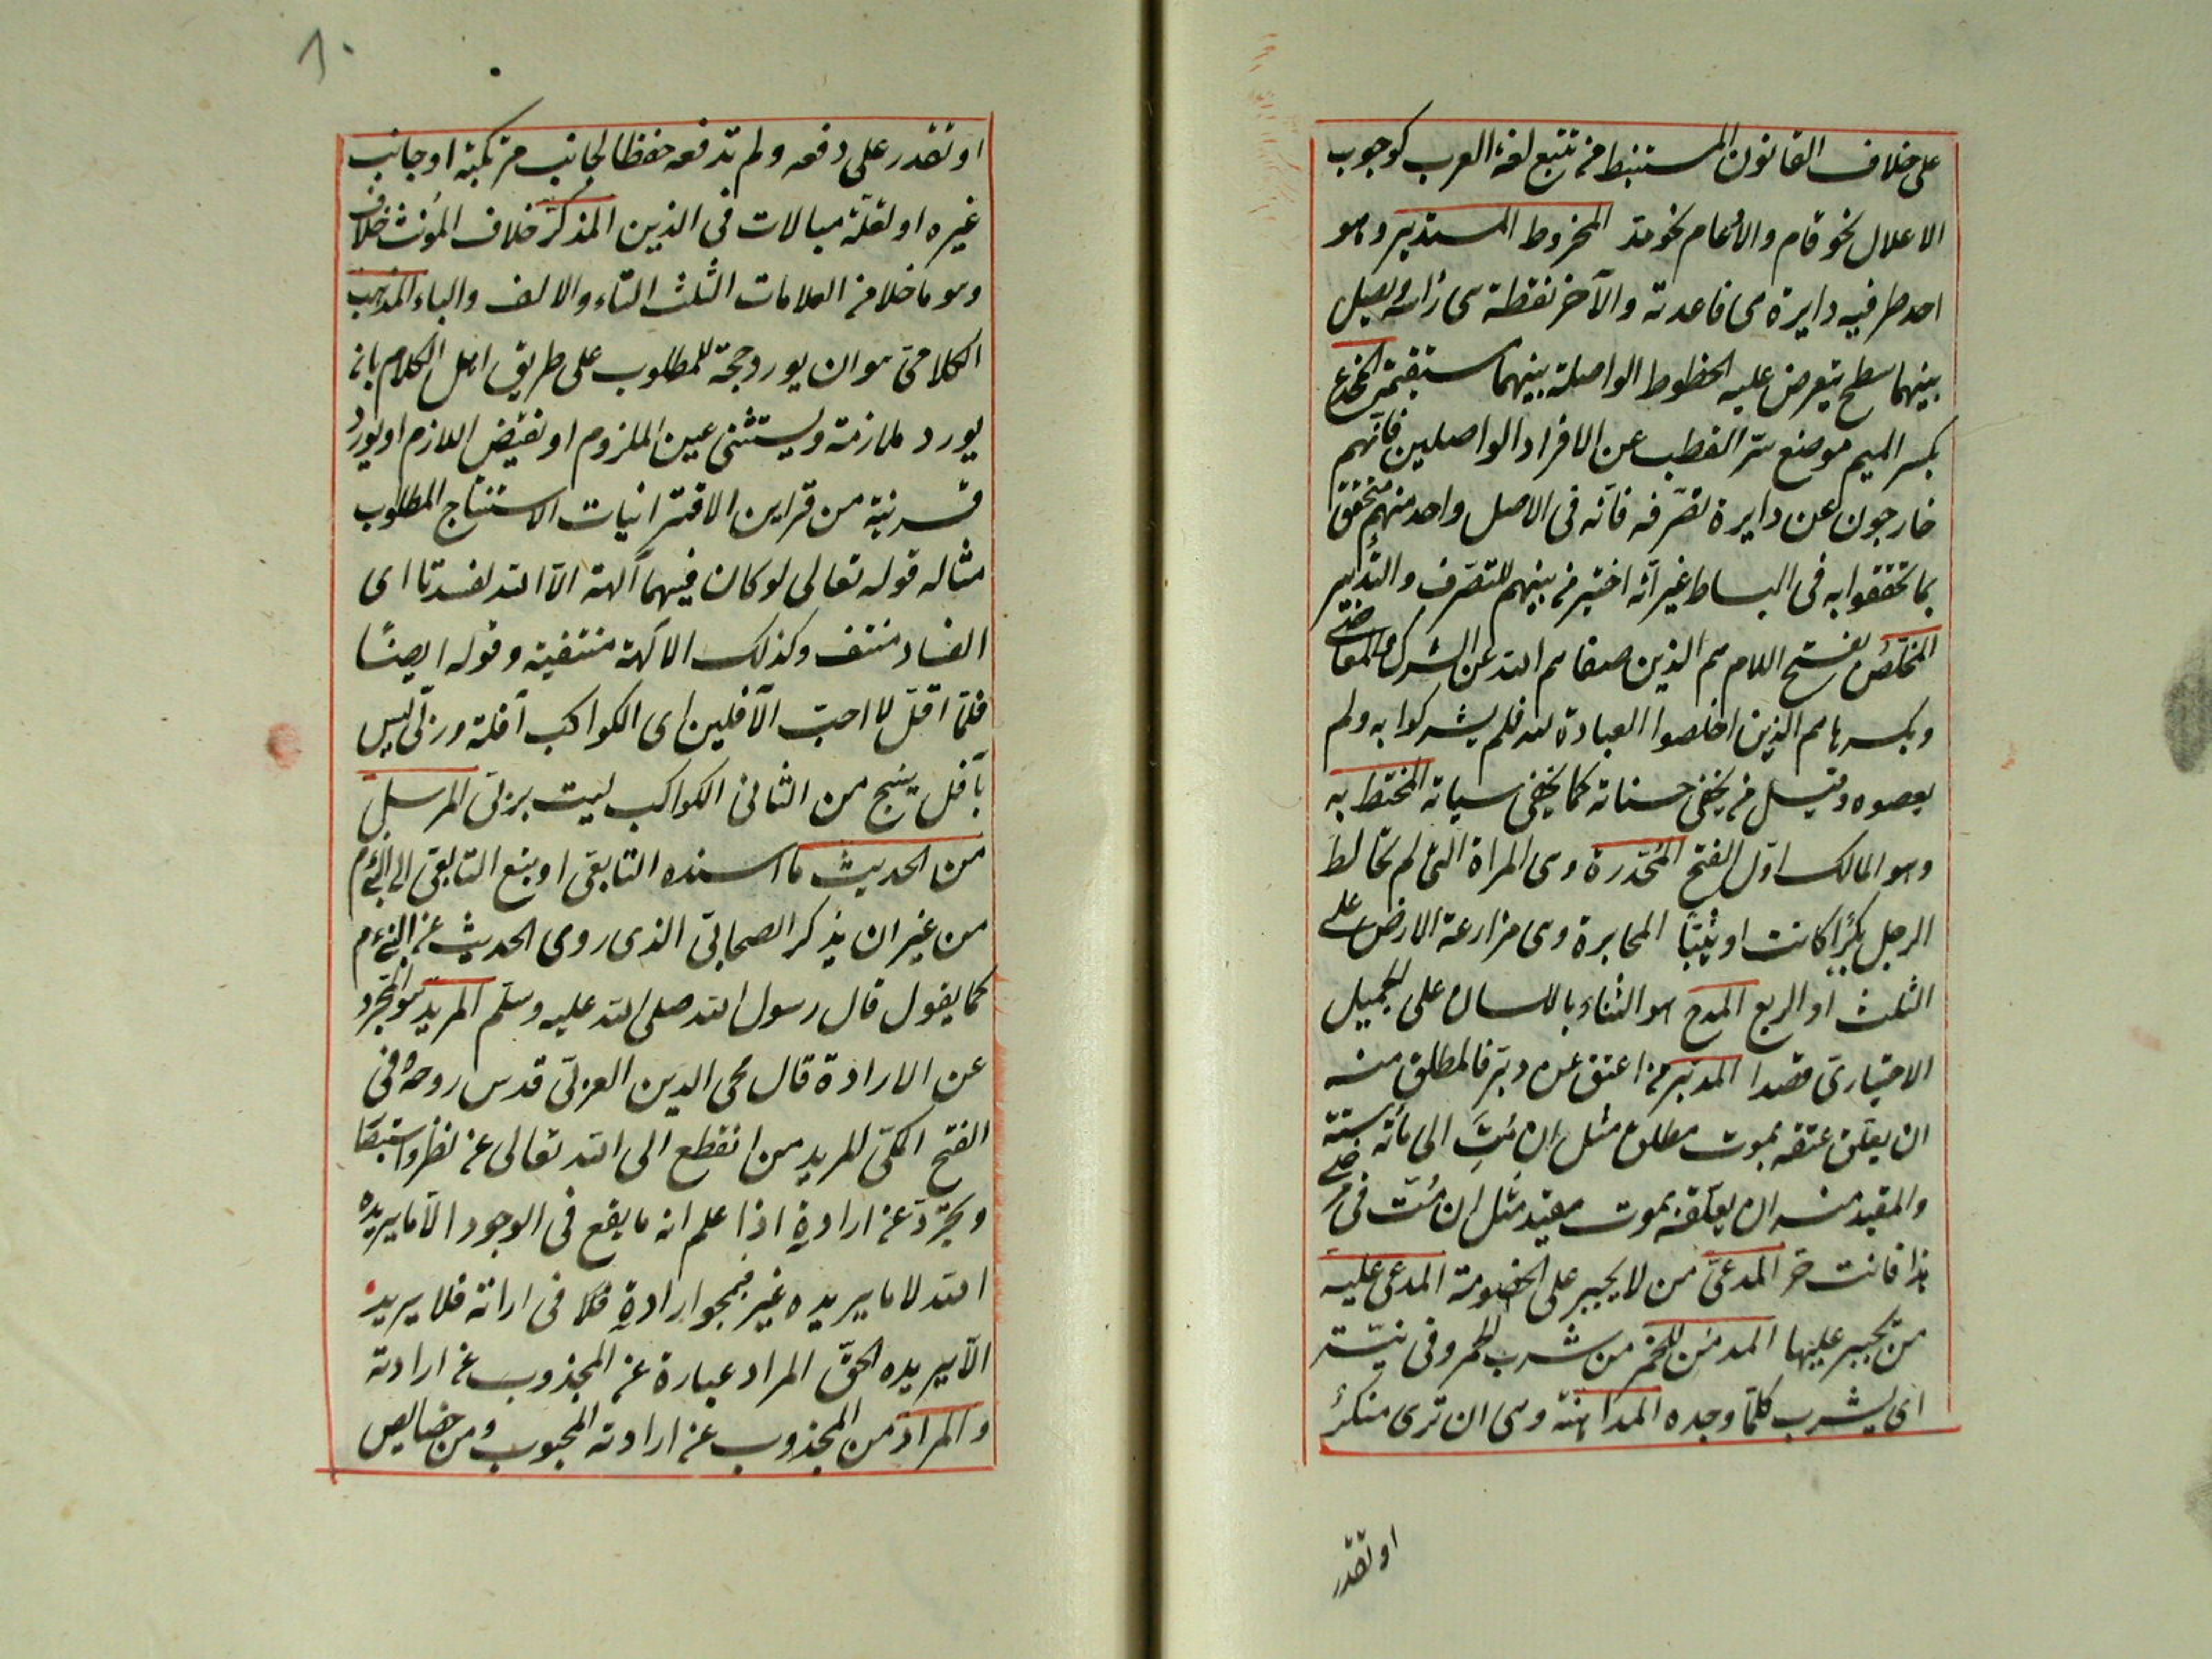 على خلاف القانون المستنبط من تتبع لغة العرب كوجوب
الاعلال نحو قام والادغام نحو مد المخروط المستدير وهو
احد طرفيه دايرة هى قاعدته والآخر نقطة هى رأسه ويصل
بينهما سطح يتعرض عليه الخطوط الواصلة بينهما مستقيمة المخدع
بكسر الميم موضع ستر القطب عن الافراد الواصلين فانهم
خارجون عن دايرة تصرفه فانه فى الاصل واحد منهم متحقق
بما تحققوا به فى البساط غير انه اختير من بينهم للتصرف والتدبير
المخلص بفتح اللام هم الذين صفاهم الله عن الشرك والمعاصى
وبكسرها هم الذين اخلصوا العبادة لله فلم يشركوا به ولم
يعصوه وقيل من يخفى حسناته كما يخفى سياته المختط به
وهو المالك اول الفتح المخدرة وهى المراة التى لم تخالط
الرجل بكرا كانت او ثيبا المخابرة وهى مزارعة الارض على
الثلث او الربع المدح هو الثناء باللسان على الجميل
الاختيارى قصدا المدبر من اعتق عن دبر فالمطلق منه
ان يعلق عتقه بموت مطلق مثل ان مت الى مائة سنة
والمقيد منه ان يعلقه بموت مقيد مثل ان مت فى مرضى
هذا فانت حر المدعى من لا يجبر على الخصومة المدعى عليه
من يجبر عليها المدمن للخمر من شرب الخمر وفى نيته
اى يشرب كلما وجده المداهنة وهى ان ترى منكرا
او تقدر
١٠
او تقدر على دفعه ولم تدفعه حفظا لجانب مرتكبه او جانب
غيره او لقلة مبالات فى الدين المذكر خلاف المؤنث خلاف
وهو ما خلا من العلامات الثلث التاء والالف والياء المذهب
الكلامى هو ان يورد حجة للمطلوب على طريق اهل الكلام بان
يورد ملازمة ويستثنى عين الملزوم او نقيض اللازم او يورد
قرينة من قراين الاقترانيات لاستنتاج المطلوب
مثاله قوله تعالى لو كان فيهما آلهة الا الله لفسدتا اى
الفساد منتف وكذلك الآلهة منتفية وقوله ايضا
فلما افل لا احب الآفلين اى الكواكب آفلة وربى ليس
بآفل ينتج من الثانى الكواكب ليست بربى المرسل
من الحديث ما اسنده التابعى او تبع التابعى الى النبى م
من غير ان يذكر الصحابى الذى روى الحديث عن النبى م
كما يقول قال رسول الله صلى الله عليه وسلم المريد هو المجرد
عن الارادة قال محى الدين العربى قدس روحه فى
الفتح المكى المريد من انقطع الى الله تعالى عن نظر واستبصار
وتجرد عن ارادة اذا علم انه ما يقع فى الوجود الا ما يريده
الله لا ما يريده غيره فيمحو ارادة فلا فى ارادته فلا يريد
الا يريده الحق المراد عبارة عن المجذوب عن ارادته
والمراد من المجذوب عن ارادته المحبوب ومن خصايص